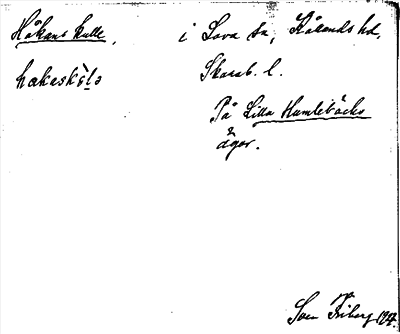 Håkans kulle, i Lova sn, Kållands hd,
hakeskúlə Skarab. l.
På Lilla Humlebäcks
ägor.
Sven Friberg 1927.